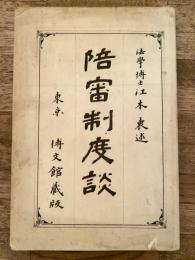 法學博士江木衷述
陪審制度談
東京 博文館藏版